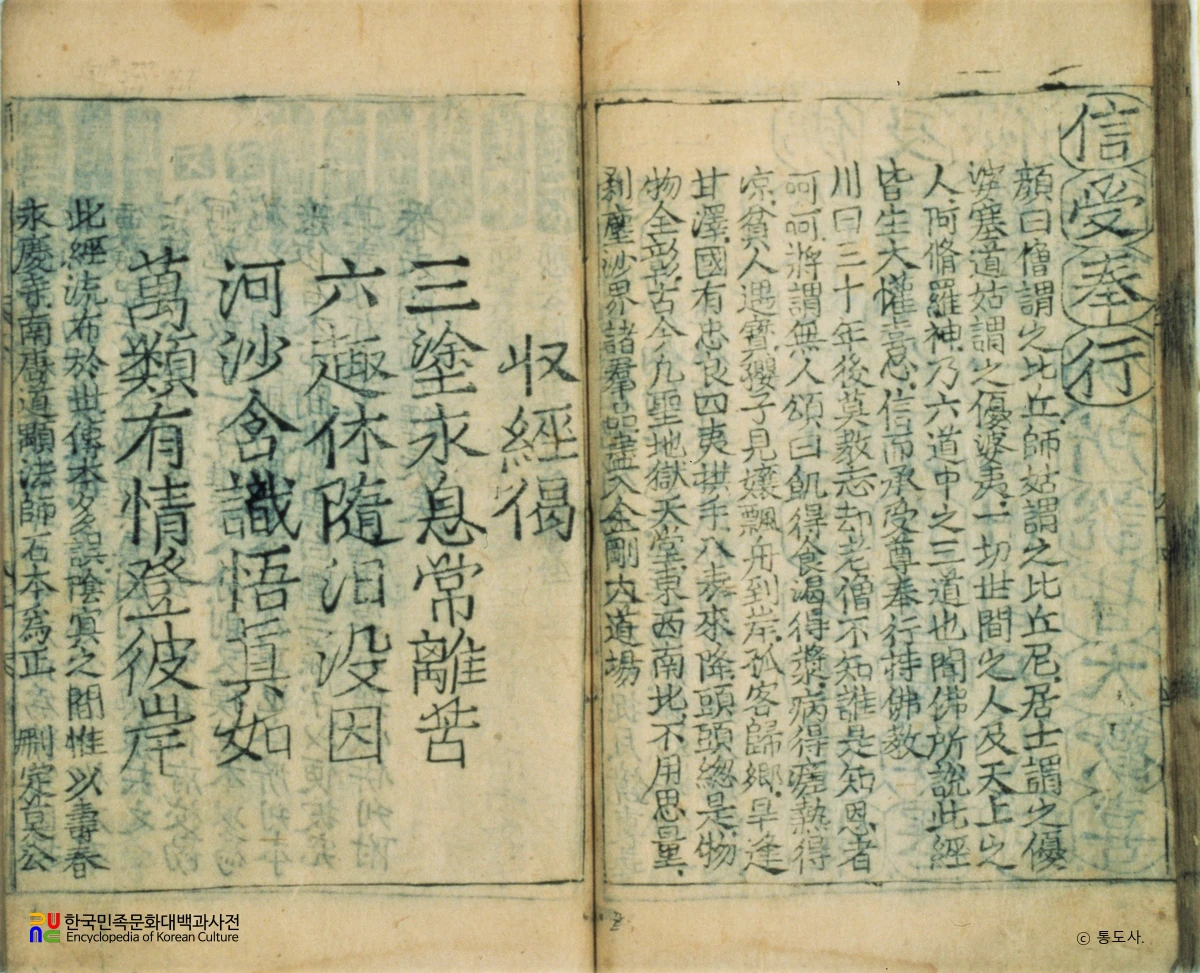 信受奉行
顏曰僧謂之比丘師姑謂之比丘尼居士謂之優
婆塞道姑謂之優婆夷一切世間之人及天上之
人阿脩羅神乃六道中之三道也聞佛所說此經
皆生大懽喜忠信而承受尊奉行持佛教
川曰三十年後莫教忘却老僧不知誰是知恩者
呵呵將謂無人頌曰飢得食渴得漿病得瘥熱得
凉貧人遇寶孾子見孃飄舟到岸孤客歸鄉旱逢
甘澤國有忠良四夷拱手八表來降頭頭總是物
物全彰古今凡聖地獄天堂東西南北不用思量
刹塵沙界諸羣品盡入金剛大道場
收經偈
三塗永息常離苦
六趣休隨汨没因
河沙含識悟真如
萬類有情登彼岸
此經流布於世傳本多誤陰寘之間惟以壽春
永慶寺南唐道顒法師石本為正 刪定莫公
한국민족문화대백과사전
Encyclopedia of Korean Culture
ⓒ 통도사.